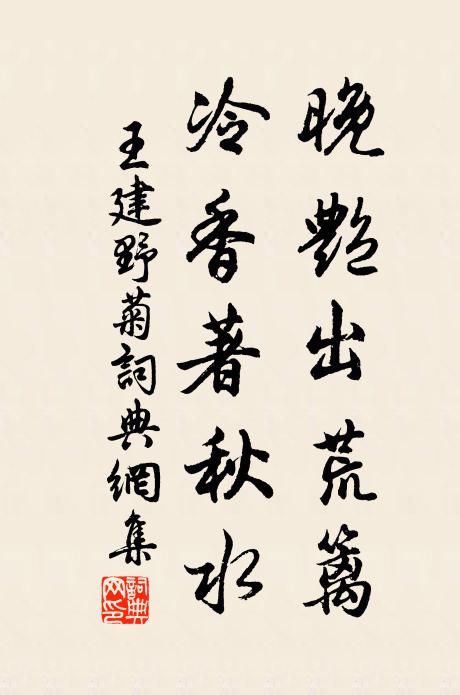 晚艷出荒籬
冷香著秋水
王建野菊詞典網集
詞典網印